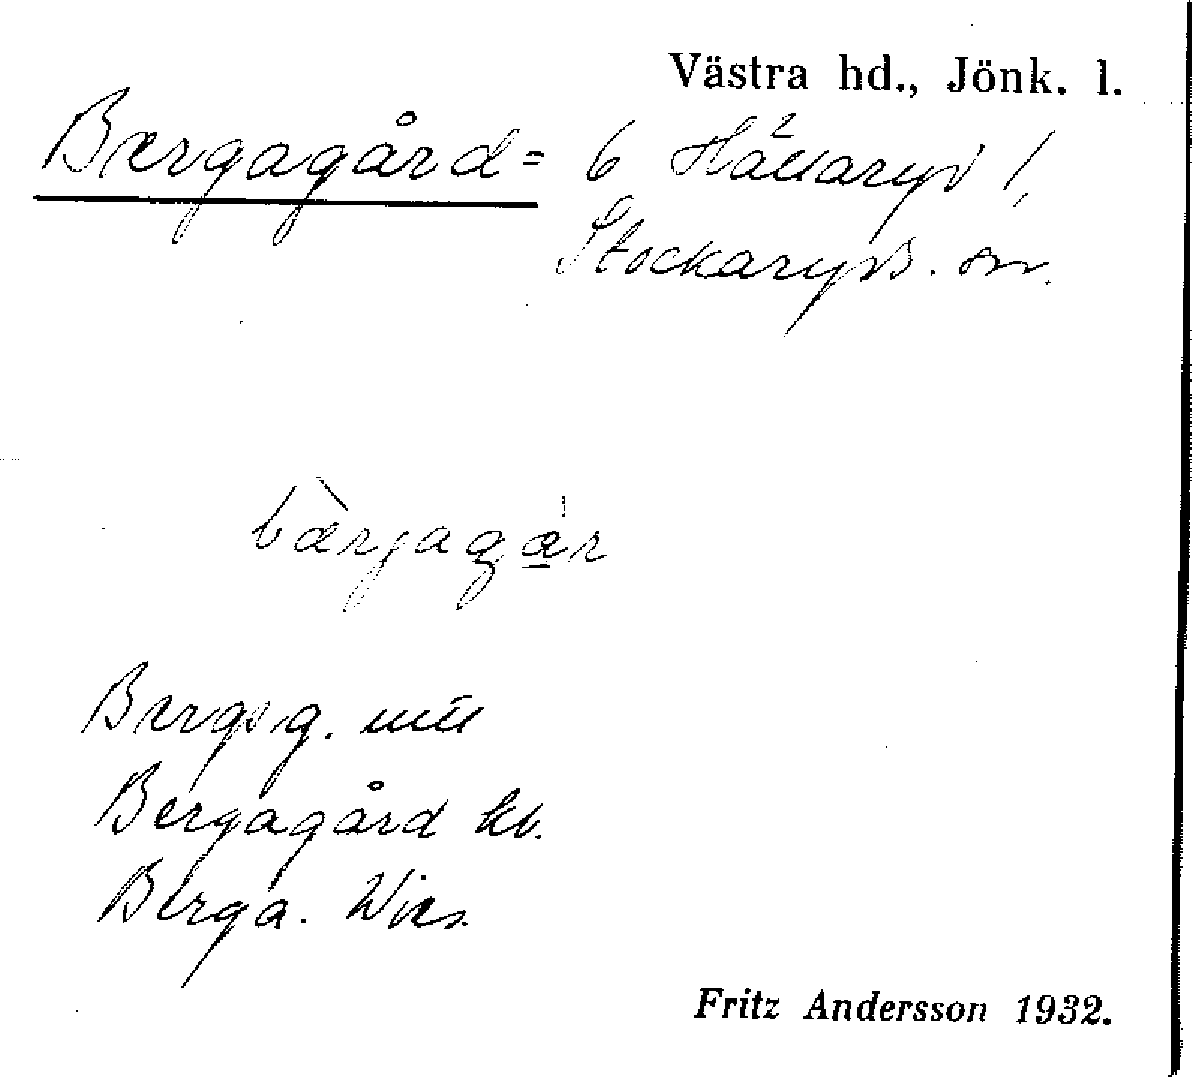 Västra hd., Jönk. l.
Bergagård = 6 Hällaryd 1,
Stockaryds. sn.
bàrjagár
Bergag.
Bergagård kb.
Berga. Wies.
Fritz Andersson 1932.